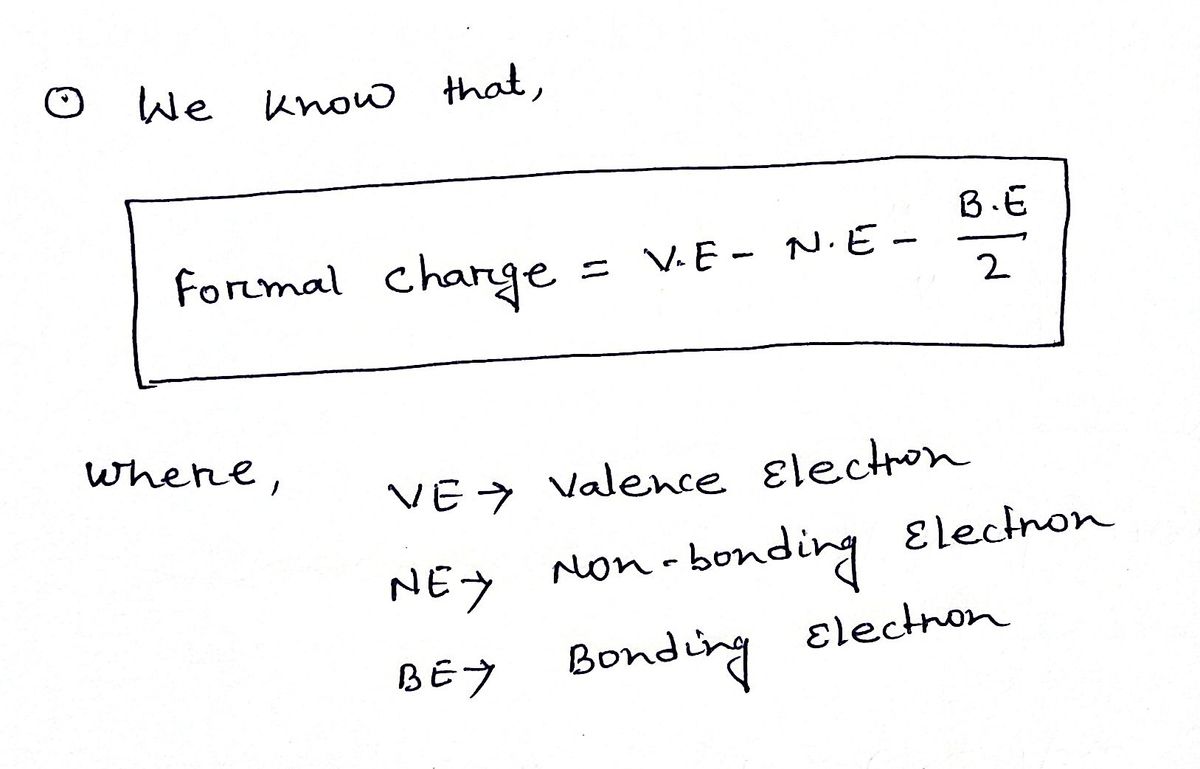 ⊙ We know that,
Formal charge = V.E - N.E - B.E/2
where,
VE → Valence Electron
NE → Non-bonding Electron
BE → Bonding Electron